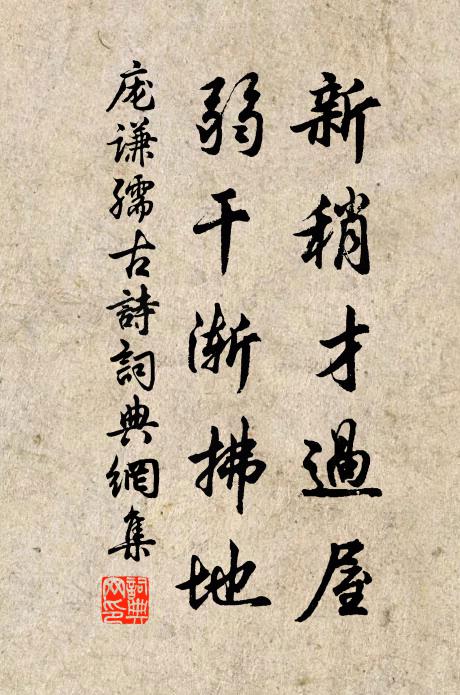 新稍才過屋
弱干渐拂地
庞谦孺古詩詞典網集
詞典